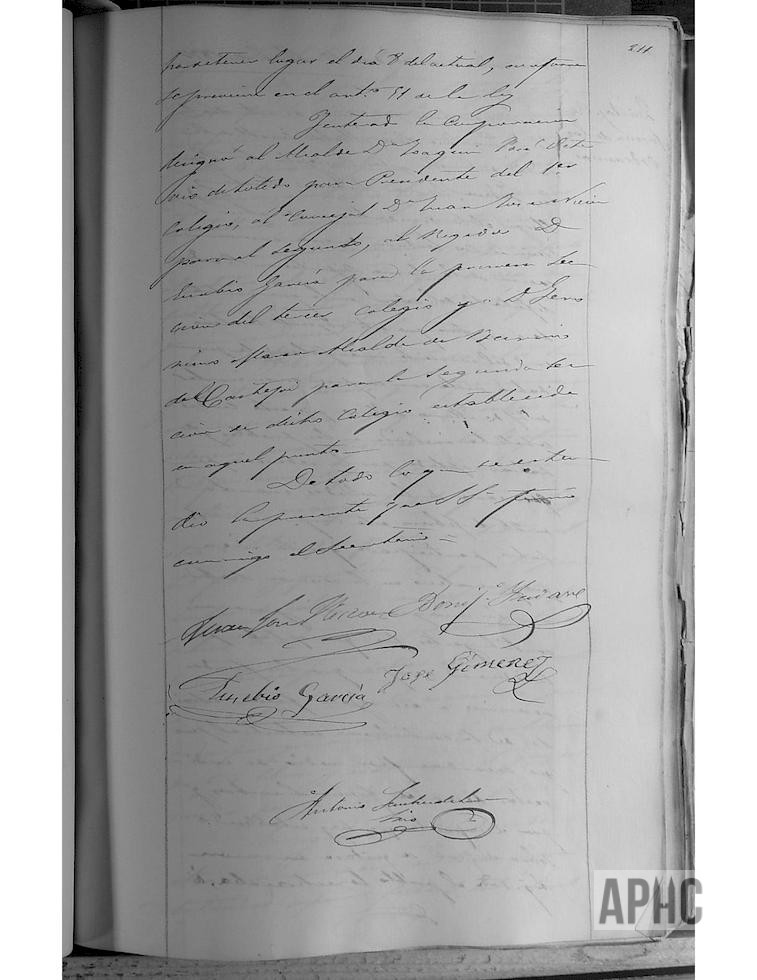 211
ha de tener lugar el día 8 del actual, conforme
se previene en el art.º 51 de la ley
Enterada la Corporacion
designó al Alcalde Dn Joaquin José
de Toledo para Presidente del 1er
Colegio, al Concejal Dn Juan José
para el segundo, al Regidor D
Eusebio García para la primera Sec
cion del tercer colegio y a D. Gero
nimo Alcalde de Barrio
del para la segunda sec
cion de dicho Colegio establecida
en aquel punto
De todo lo que se exten
dió la presente que S.S. firmó
conmigo el Secretario =
Juan José
Eusebio García José Gimenez
Antonio
Srio
APHC